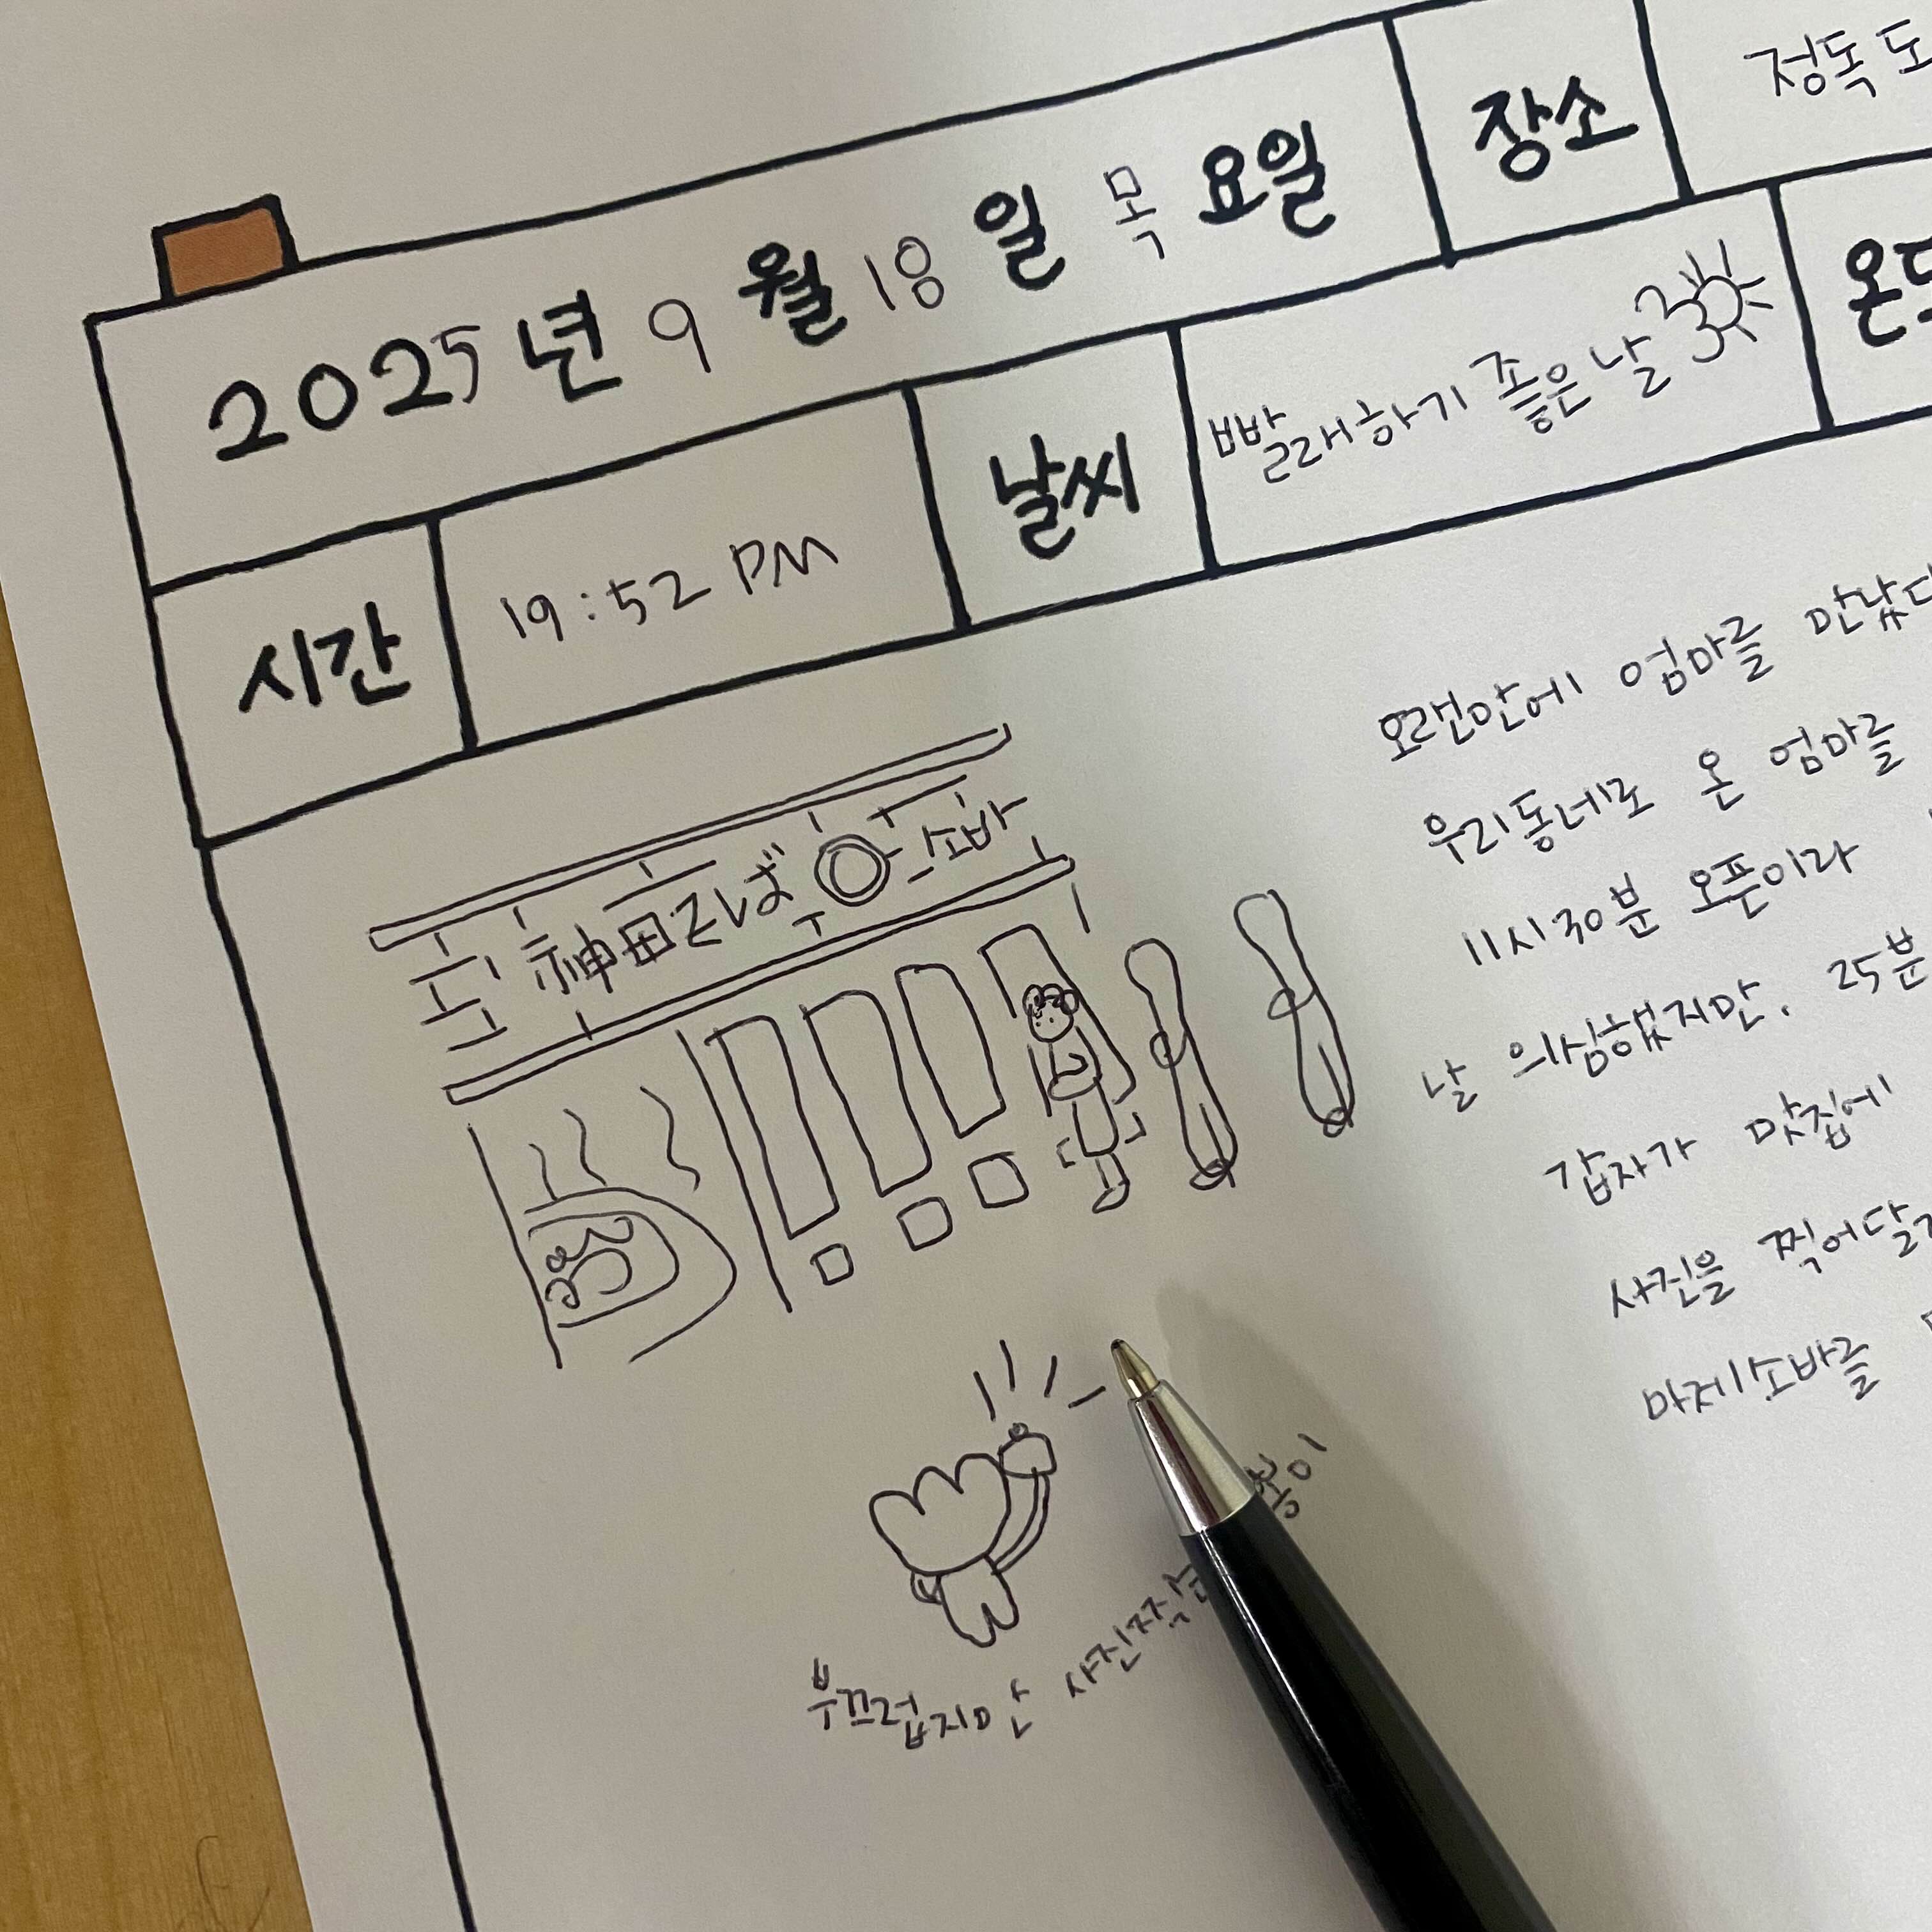 2025년 9월 18일 목요일
장소
정독도
시간
19:52 PM
날씨
빨래하기 좋은 날
神田そば
소바
오랜만에 엄마를 만났다
우리동네로 온 엄마를
11시30분 오픈이라
날 의심했지만. 25분
갑자가 맛집에
사진을 찍어달라
마제소바를
부끄럽지만 사진